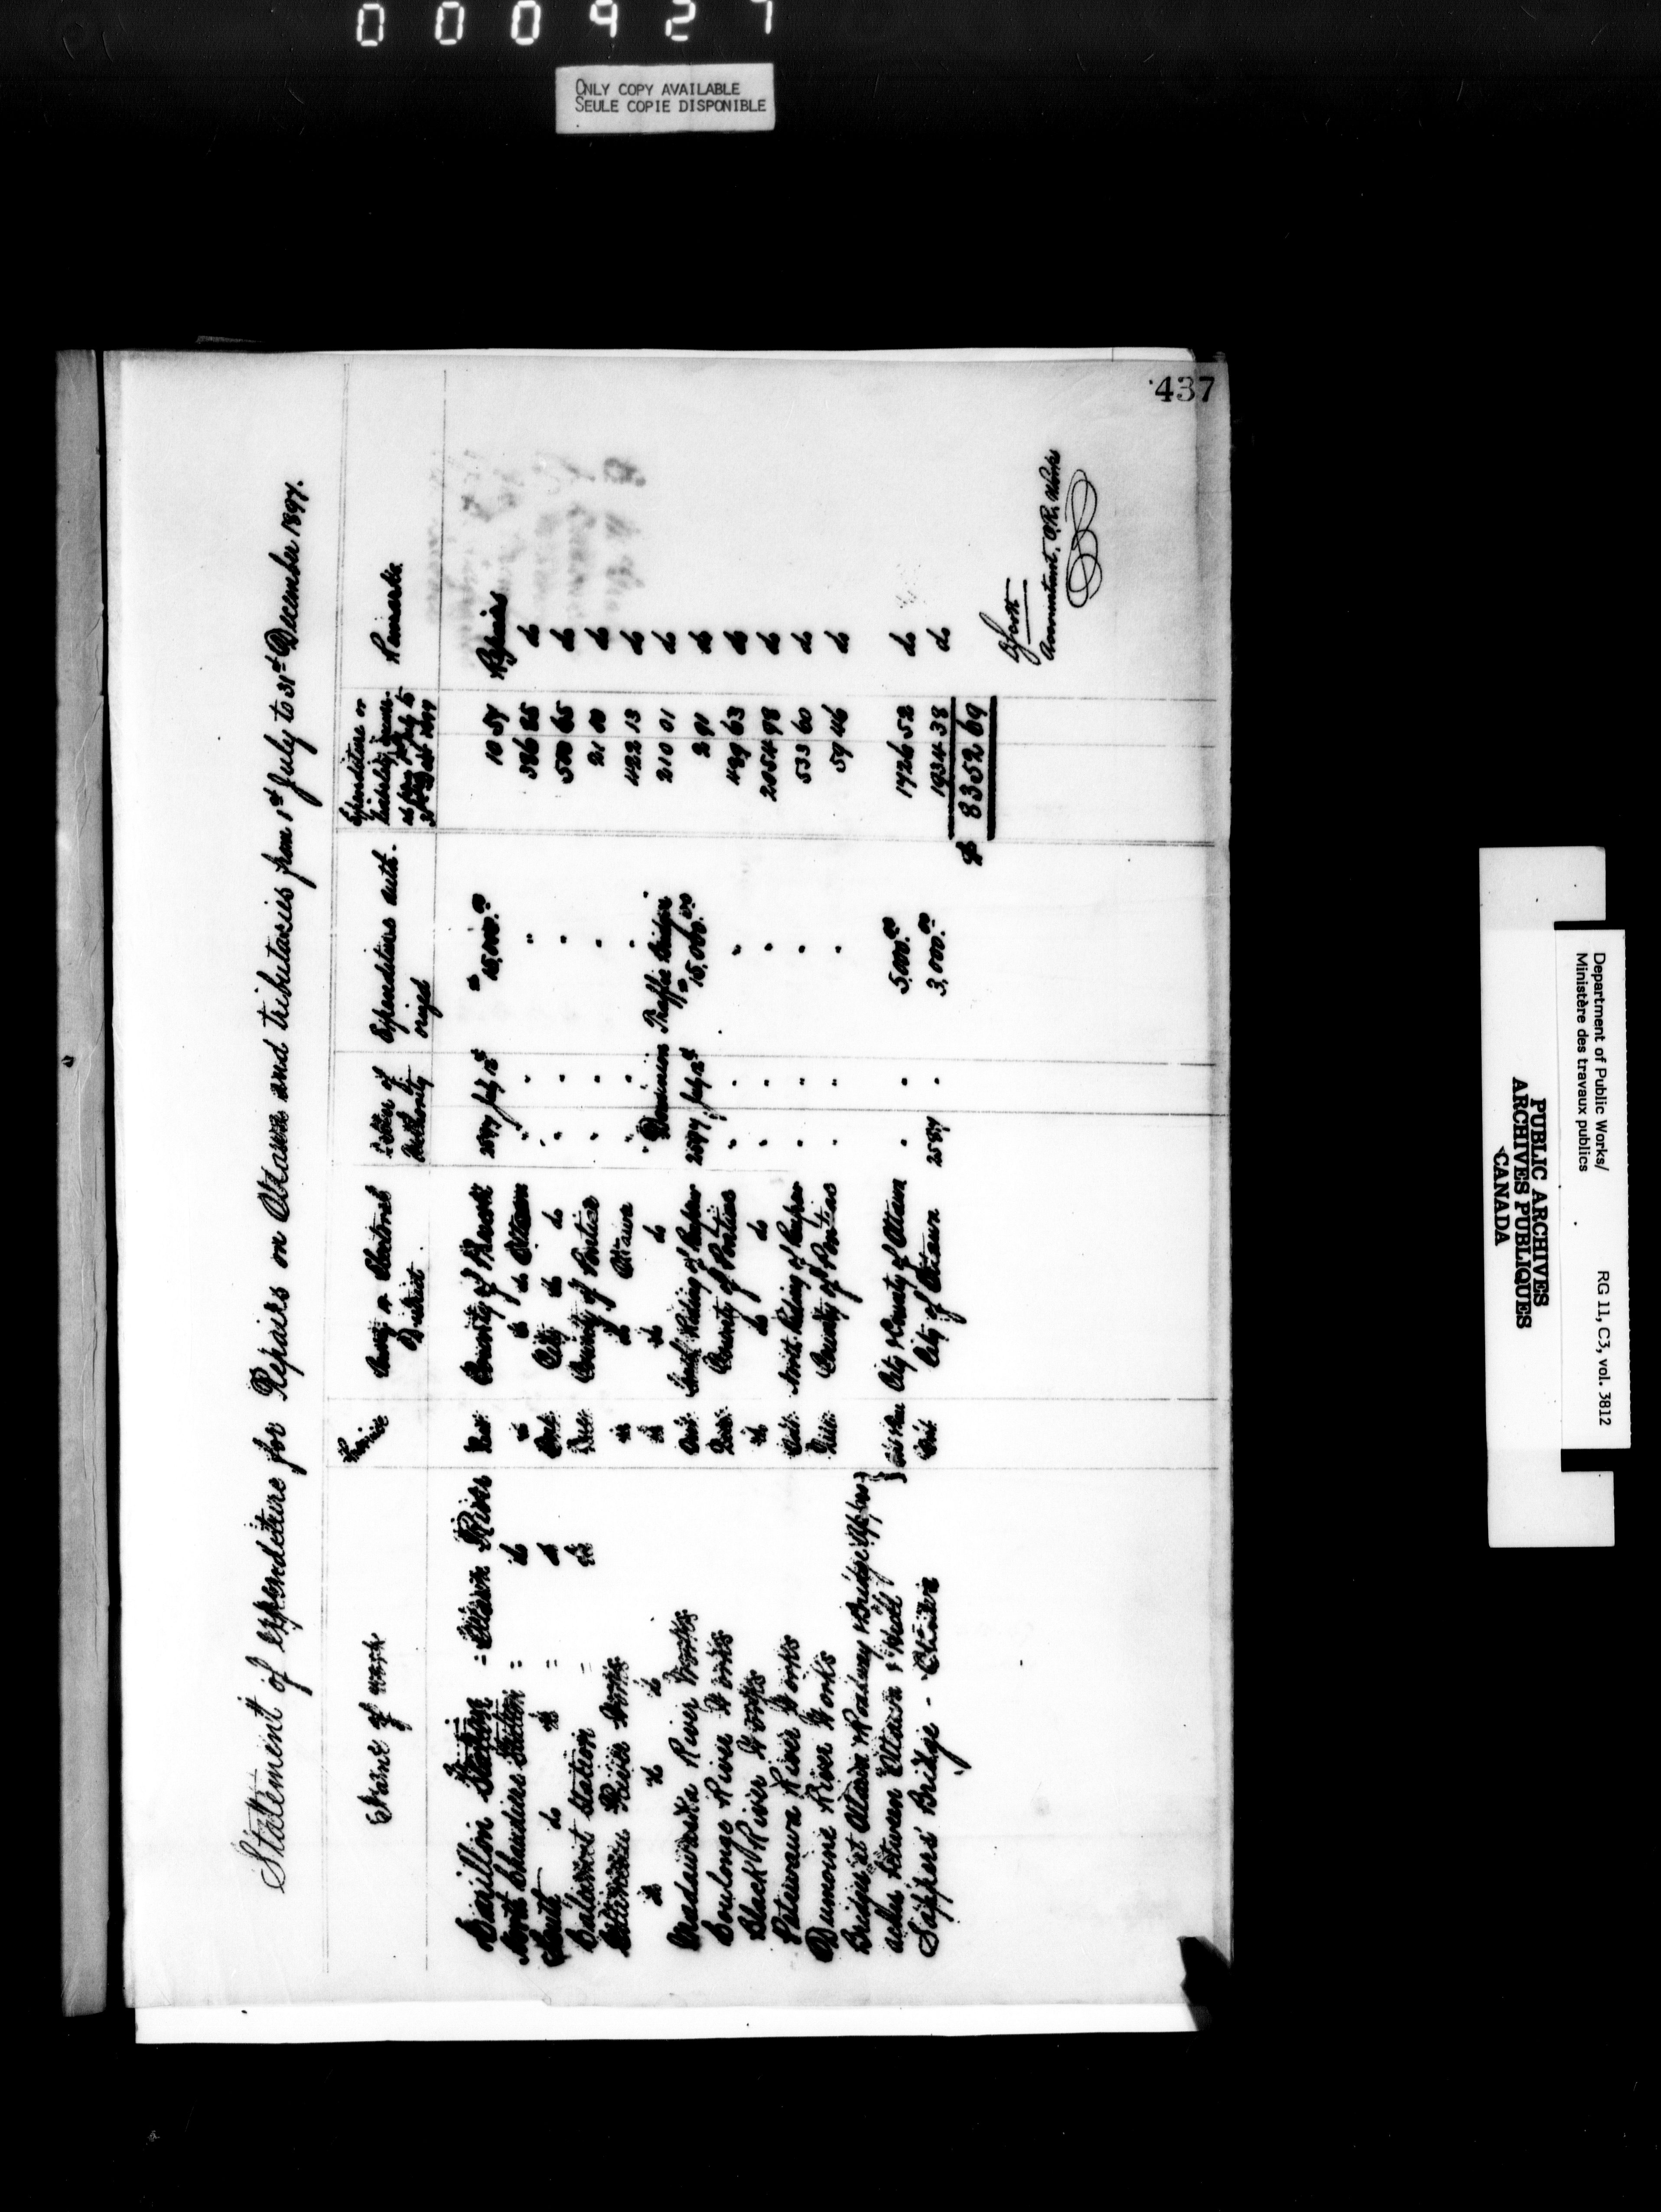 000927
ONLY COPY AVAILABLE
SEULE COPIE DISPONIBLE
437
Statement of expenditure for Repairs on Ottawa and tributaries from 1st July to 31st December 1897.
Name of Work County or Electoral District Letter of Authority Expenditures auth-orized Expenditure or Remarks
Carillon Station = Ottawa River County of 2597 July 12th $15,000.00 10 57 Repairs
North Chaudiere Station = do do do Ottawa " " " 386 85 do
South do do = do Ont. City do do " " " 65 do
Calumet Station = do Que. County of Pontiac " " " 21 do
Gatineau River Works do do Ottawa " " " 422 13 do
do do do do do do Dominion Traffic Bridges 210 01 do
Madawaska River Works Ont. South Riding of Renfrew 2597 July 12th $15,000.00 2 91 do
Coulonge River Works Que. County of Pontiac " " " 489 63 do
Black River Works do do do " " " 2054 98 do
Petewawa River Works Ont. North Riding of Renfrew " " " 533 60 do
Dumoine River Works Que. County of Pontiac " " " 59 46 do
Bridges at Ottawa & Roadway & Bridge Appro-
aches between Ottawa & Hull } City & County of Ottawa " " 5,000.00 1726 52 do
Sappers' Bridge - Ottawa Ont. City of Ottawa 2587 " 3,000.00 1934 38 do
$ 8352 69
Scott
Accountant, O.R. Works
Department of Public Works/
Ministère des travaux publics
RG 11, C3, vol. 3812
PUBLIC ARCHIVES
ARCHIVES PUBLIQUES
CANADA